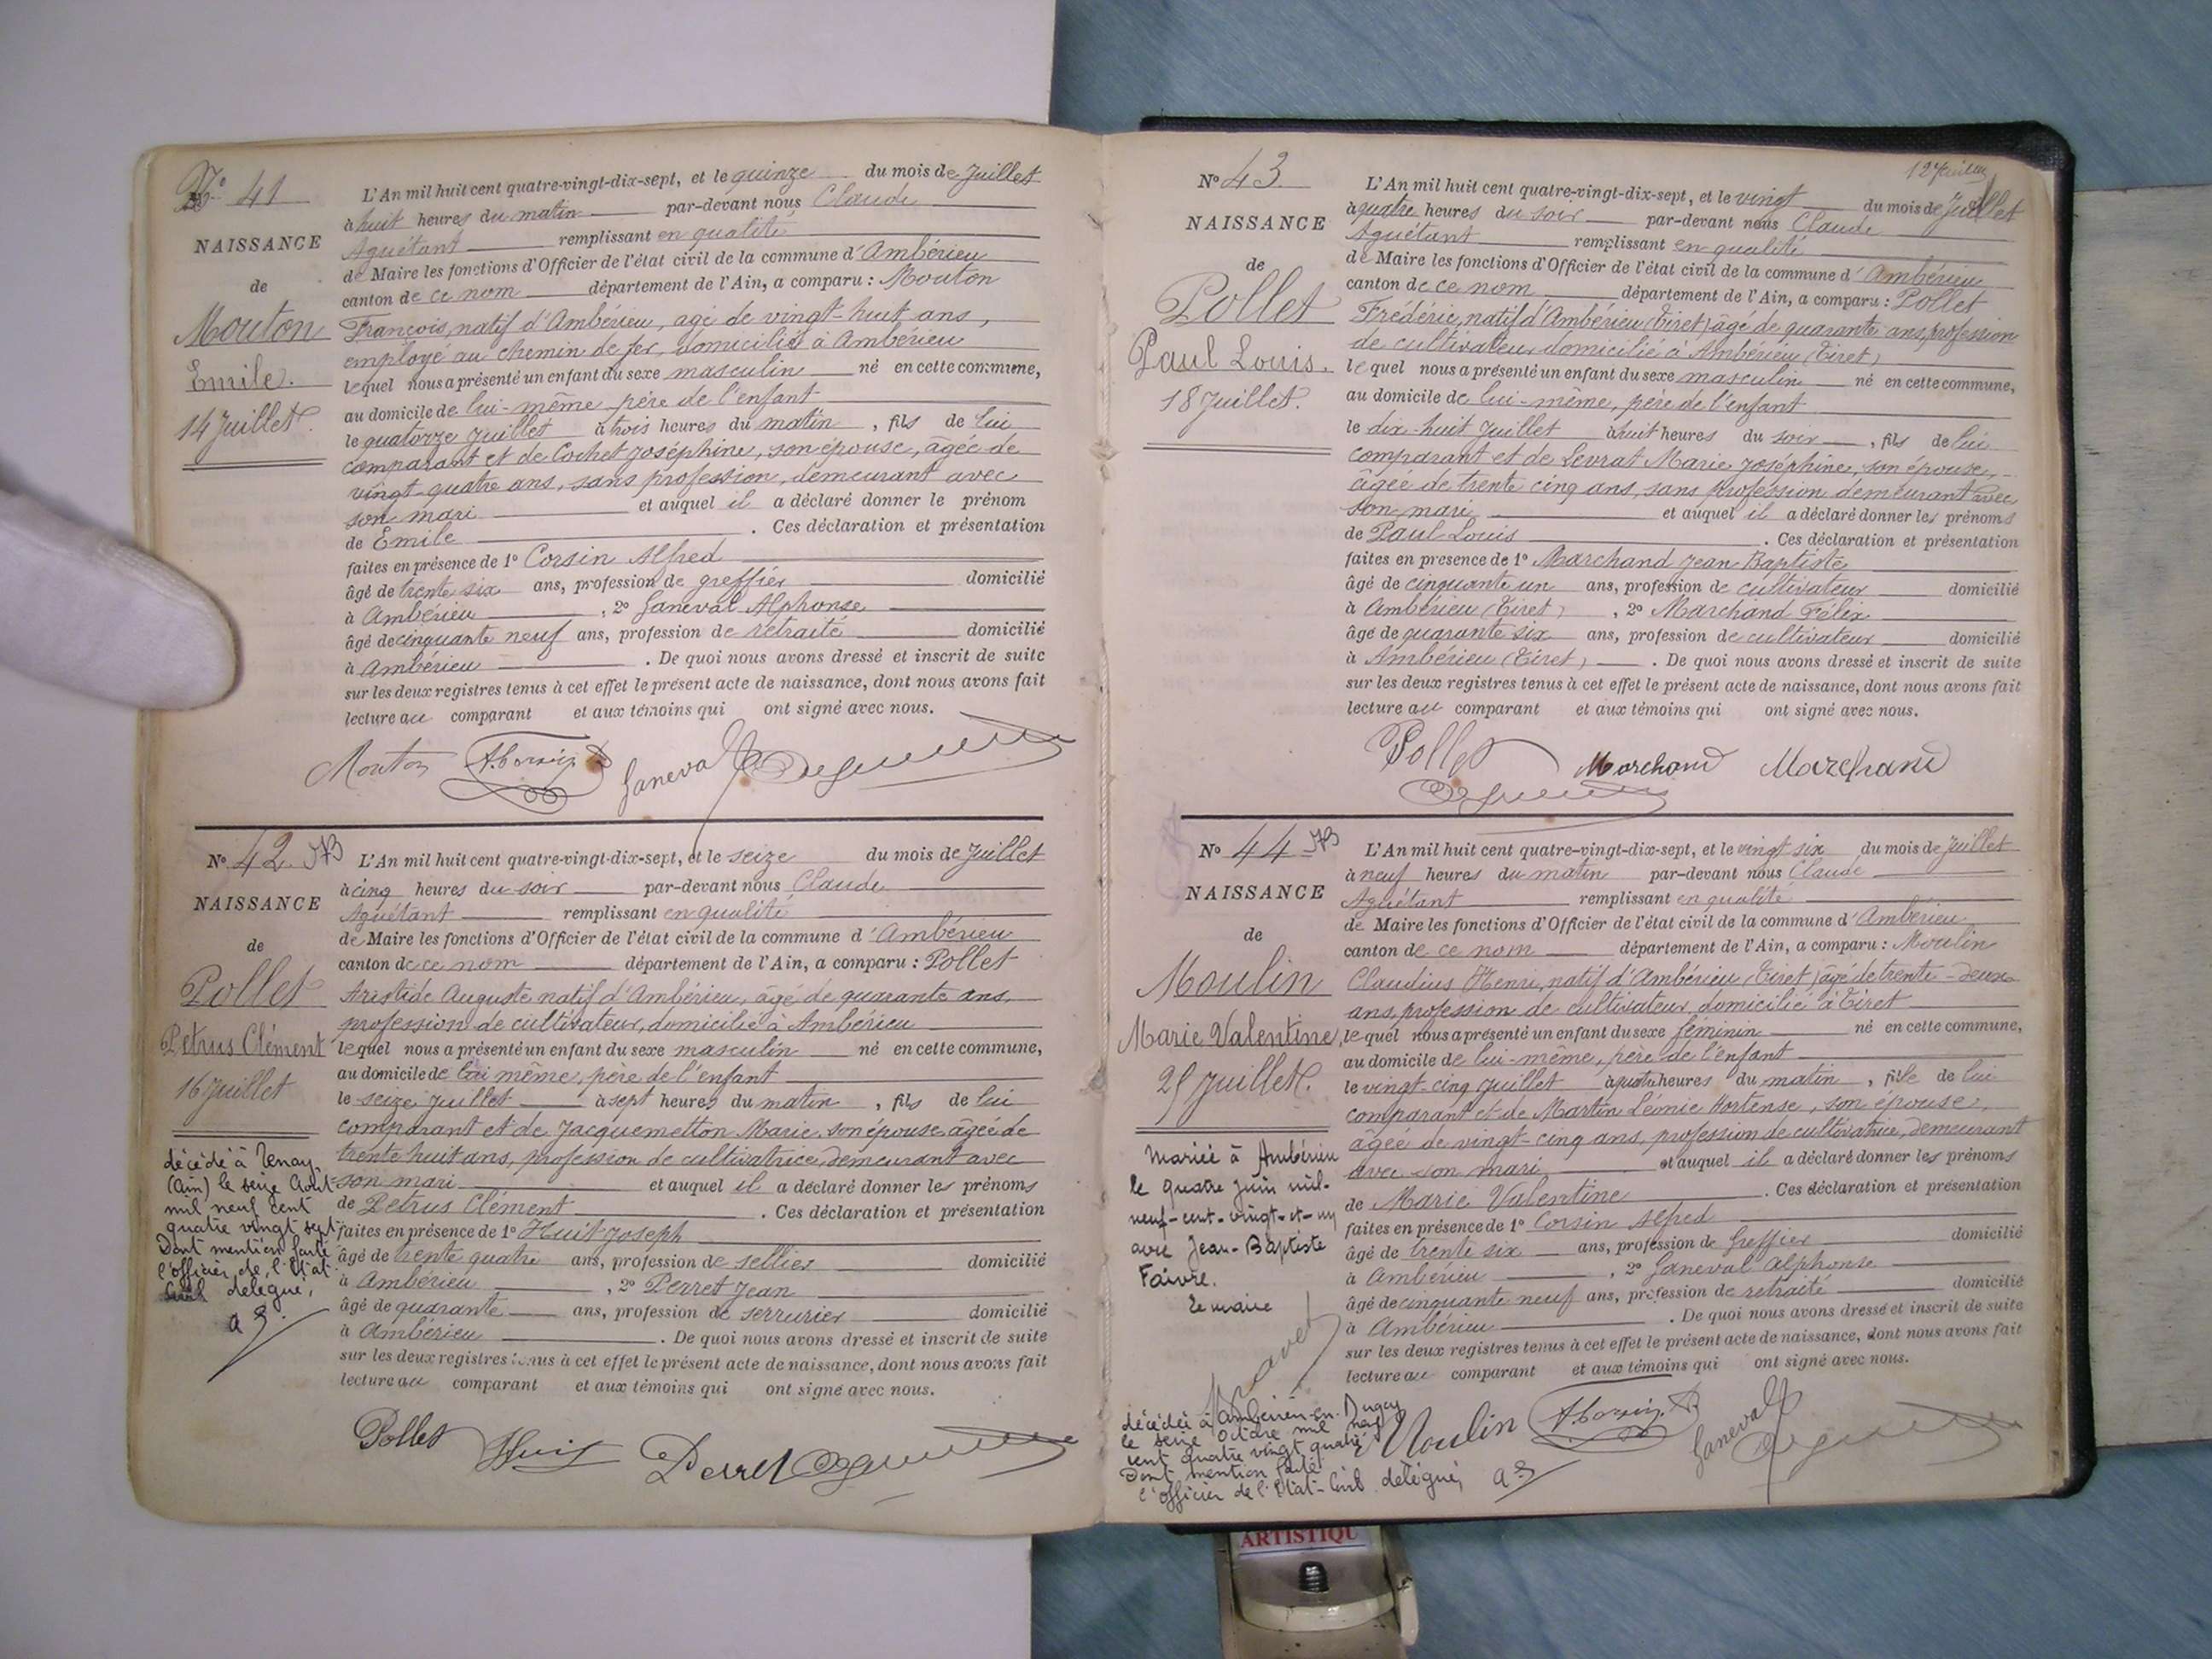 N° 41
NAISSANCE
de
Mouton
Emile.
14 Juillet.
L'An mil huit cent quatre-vingt-dix-sept, et le quinze du mois de Juillet
à huit heures du matin par-devant nous Claude
Aguétant remplissant en qualité
de Maire les fonctions d'Officier de l'état civil de la commune d'Ambérieu
canton de ce nom département de l'Ain, a comparu : Mouton
François, natif d'Ambérieu, âgé de vingt-huit ans,
employé au chemin de fer, domicilié à Ambérieu
lequel nous a présenté un enfant du sexe masculin né en cette commune,
au domicile de lui-même père de l'enfant
le quatorze Juillet à trois heures du matin, fils de lui
comparant et de Cochet Joséphine, son épouse, âgée de
vingt-quatre ans, sans profession, demeurant avec
son mari et auquel il a déclaré donner le prénom
de Emile. Ces déclaration et présentation
faites en présence de 1° Corsin Alfred
âgé de trente six ans, profession de greffier domicilié
à Ambérieu, 2° Janeval Alphonse
âgé de cinquante neuf ans, profession de retraité domicilié
à Ambérieu. De quoi nous avons dressé et inscrit de suite
sur les deux registres tenus à cet effet le présent acte de naissance, dont nous avons fait
lecture au comparant et aux témoins qui ont signé avec nous.
Mouton A. Corsin Janeval
N° 42
NAISSANCE
de
Pollet
Petrus Clément
16 Juillet
décédé à Tenay
(Ain) le seize Août
mil neuf cent
quatre vingt sept
Dont mention faite
l'officier de l'Etat
Civil délégué,
L'An mil huit cent quatre-vingt-dix-sept, et le seize du mois de Juillet
à cinq heures du soir par-devant nous Claude
Aguétant remplissant en qualité
de Maire les fonctions d'Officier de l'état civil de la commune d'Ambérieu
canton de ce nom département de l'Ain, a comparu : Pollet
Aristide Auguste natif d'Ambérieu, âgé de quarante ans,
profession de cultivateur, domicilié à Ambérieu
lequel nous a présenté un enfant du sexe masculin né en cette commune,
au domicile de lui même, père de l'enfant
le seize Juillet à sept heures du matin, fils de lui
comparant et de Jacquemetton Marie, son épouse âgée de
trente huit ans, profession de cultivatrice, demeurant avec
son mari et auquel il a déclaré donner les prénoms
de Petrus Clément. Ces déclaration et présentation
faites en présence de 1° Huit Joseph
âgé de trente quatre ans, profession de sellier domicilié
à Ambérieu, 2° Perret Jean
âgé de quarante ans, profession de serrurier domicilié
à Ambérieu. De quoi nous avons dressé et inscrit de suite
sur les deux registres tenus à cet effet le présent acte de naissance, dont nous avons fait
lecture au comparant et aux témoins qui ont signé avec nous.
Pollet Huit Perret
N° 43
NAISSANCE
de
Pollet
Paul Louis.
18 Juillet.
L'An mil huit cent quatre-vingt-dix-sept, et le vingt du mois de Juillet
à quatre heures du soir par-devant nous Claude
Aguétant remplissant en qualité
de Maire les fonctions d'Officier de l'état civil de la commune d'Ambérieu
canton de ce nom département de l'Ain, a comparu : Pollet
Frédéric, natif d'Ambérieu (Tiret) âgé de quarante ans, profession
de cultivateur, domicilié à Ambérieu (Tiret)
lequel nous a présenté un enfant du sexe masculin né en cette commune,
au domicile de lui-même, père de l'enfant
le dix-huit Juillet à huit heures du soir, fils de lui
comparant et de Levrat Marie Joséphine, son épouse,
âgée de trente cinq ans, sans profession demeurant avec
son mari et auquel il a déclaré donner les prénoms
de Paul Louis. Ces déclaration et présentation
faites en présence de 1° Marchand Jean Baptiste
âgé de cinquante un ans, profession de cultivateur domicilié
à Ambérieu (Tiret), 2° Marchand Félix
âgé de quarante six ans, profession de cultivateur domicilié
à Ambérieu (Tiret). De quoi nous avons dressé et inscrit de suite
sur les deux registres tenus à cet effet le présent acte de naissance, dont nous avons fait
lecture au comparant et aux témoins qui ont signé avec nous.
Pollet Marchand Marchand
N° 44
NAISSANCE
de
Moulin
Marie Valentine,
25 Juillet.
Mariée à Ambérieu
le quatre juin mil-
neuf-cent-vingt-et-un
avec Jean-Baptiste
Faivre.
Le maire
L'An mil huit cent quatre-vingt-dix-sept, et le vingt six du mois de Juillet
à neuf heures du matin par-devant nous Claude
Aguétant remplissant en qualité
de Maire les fonctions d'Officier de l'état civil de la commune d'Ambérieu
canton de ce nom département de l'Ain, a comparu : Moulin
Claudius Henri, natif d'Ambérieu (Tiret) âgé de trente-deux
ans, profession de cultivateur, domicilié à Tiret
lequel nous a présenté un enfant du sexe féminin né en cette commune,
au domicile de lui-même, père de l'enfant
le vingt-cinq Juillet à quatre heures du matin, fille de lui
comparant et de Martin Léonie Hortense, son épouse,
âgée de vingt-cinq ans, profession de cultivatrice, demeurant
avec son mari et auquel il a déclaré donner les prénoms
de Marie Valentine. Ces déclaration et présentation
faites en présence de 1° Corsin Alfred
âgé de trente six ans, profession de Greffier domicilié
à Ambérieu, 2° Janeval Alphonse
âgé de cinquante neuf ans, profession de retraité domicilié
à Ambérieu. De quoi nous avons dressé et inscrit de suite
sur les deux registres tenus à cet effet le présent acte de naissance, dont nous avons fait
lecture au comparant et aux témoins qui ont signé avec nous.
Moulin A. Corsin Janeval
décédée à Ambérieu-en-Bugey
le seize octobre mil neuf
cent quatre vingt quatre
Dont mention faite
l'officier de l'Etat-Civil délégué,
ARTISTIQU